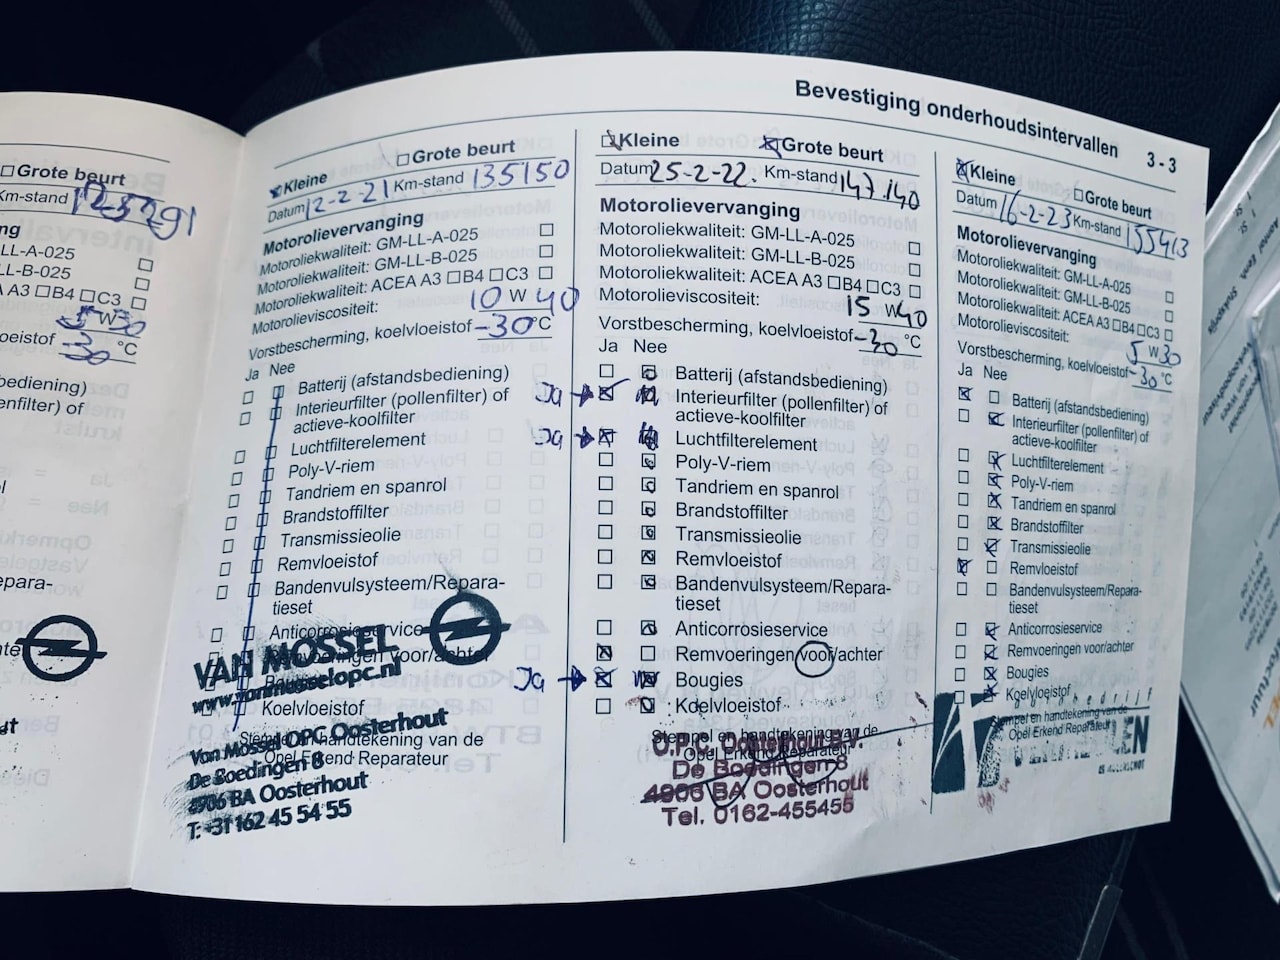 Grote beurt
Km-stand 125291
LL-A-025
LL-B-025
A A3 B4 C3
5 W 30
-30 °C
Bevestiging onderhoudsintervallen 3 - 3
Kleine Grote beurt
Datum 12-2-21 Km-stand 135150
Motorolievervanging
Motoroliekwaliteit: GM-LL-A-025
Motoroliekwaliteit: GM-LL-B-025
Motoroliekwaliteit: ACEA A3 B4 C3
Motorolieviscositeit: 10 W 40
Vorstbescherming, koelvloeistof -30 °C
Ja Nee
Batterij (afstandsbediening)
Interieurfilter (pollenfilter) of
actieve-koolfilter
Luchtfilterelement
Poly-V-riem
Tandriem en spanrol
Brandstoffilter
Transmissieolie
Remvloeistof
Bandenvulsysteem/Repara-
tieset
Anticorrosieservice
Remvoeringen voor/achter
Koelvloeistof
Stempel en handtekening van de
Opel Erkend Reparateur
VAN MOSSEL
www.vanmosselopc.nl
Van Mossel OPC Oosterhout
De Boedingen 8
4906 BA Oosterhout
T: +31 162 45 54 55
Kleine Grote beurt
Datum 25-2-22. Km-stand 147.140
Motorolievervanging
Motoroliekwaliteit: GM-LL-A-025
Motoroliekwaliteit: GM-LL-B-025
Motoroliekwaliteit: ACEA A3 B4 C3
Motorolieviscositeit: 15 W 40
Vorstbescherming, koelvloeistof -30 °C
Ja Nee
Batterij (afstandsbediening)
Ja Interieurfilter (pollenfilter) of
actieve-koolfilter
Ja Luchtfilterelement
Poly-V-riem
Tandriem en spanrol
Brandstoffilter
Transmissieolie
Remvloeistof
Bandenvulsysteem/Repara-
tieset
Anticorrosieservice
Remvoeringen voor/achter
Ja Bougies
Koelvloeistof
Stempel en handtekening van de
Opel Erkend Reparateur
O.P.C. Oosterhout B.V.
De Boedingen 8
4906 BA Oosterhout
Tel. 0162-455455
Kleine Grote beurt
Datum 16-2-23 Km-stand 155413
Motorolievervanging
Motoroliekwaliteit: GM-LL-A-025
Motoroliekwaliteit: GM-LL-B-025
Motoroliekwaliteit: ACEA A3 B4 C3
Motorolieviscositeit: 5 W 30
Vorstbescherming, koelvloeistof -30 °C
Ja Nee
Batterij (afstandsbediening)
Interieurfilter (pollenfilter) of
actieve-koolfilter
Luchtfilterelement
Poly-V-riem
Tandriem en spanrol
Brandstoffilter
Transmissieolie
Remvloeistof
Bandenvulsysteem/Repara-
tieset
Anticorrosieservice
Remvoeringen voor/achter
Bougies
Koelvloeistof
Stempel en handtekening van de
Opel Erkend Reparateur